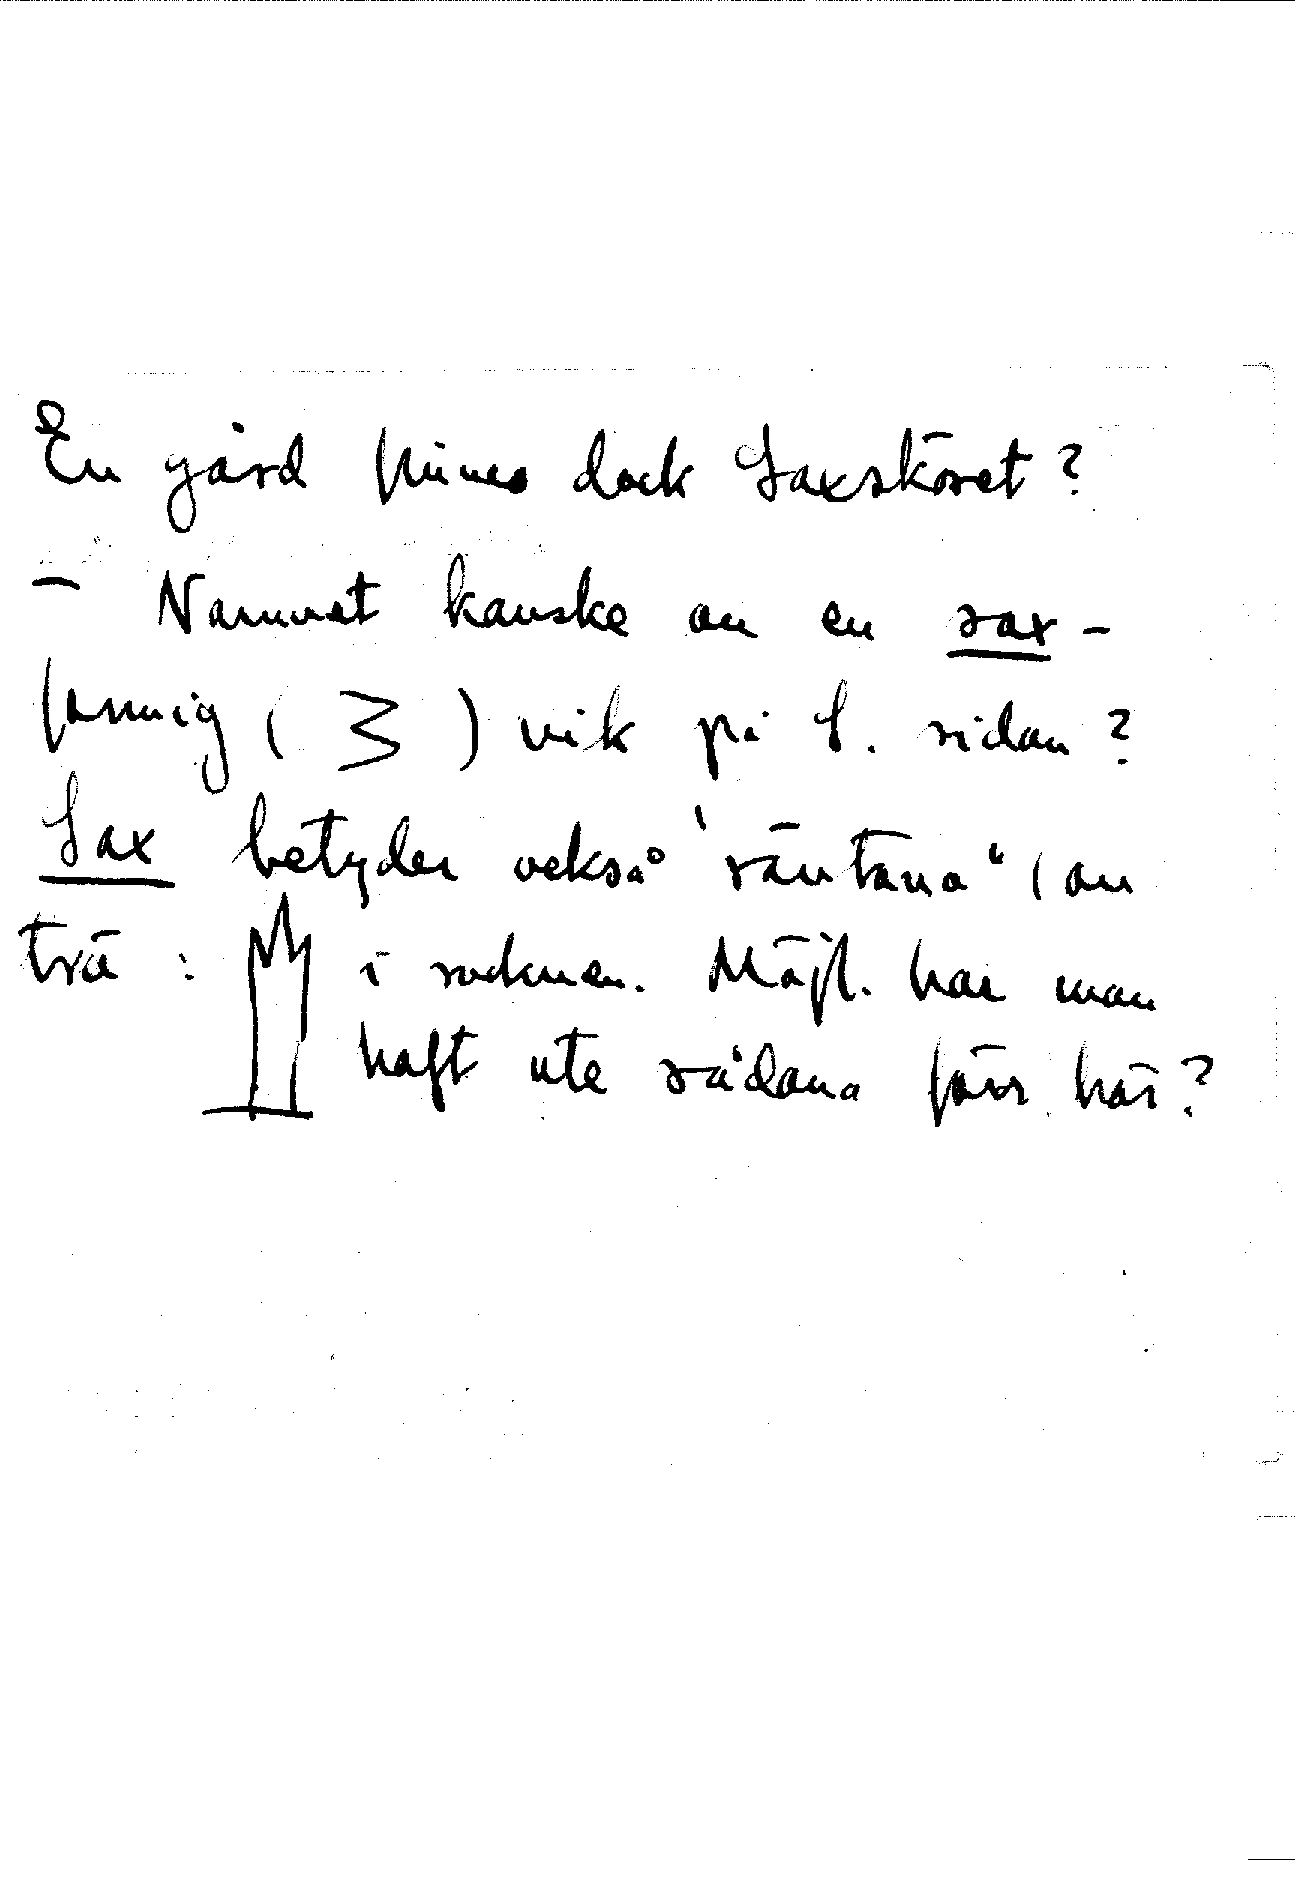 En gård finnes dock Saxskäret?
– Namnet kanske av en sax-
formig ( ) vik på S. sidan?
Sax betyder också "säntana" (av
trä : i socknen. Möjl. har man
haft ute sådana förr här?